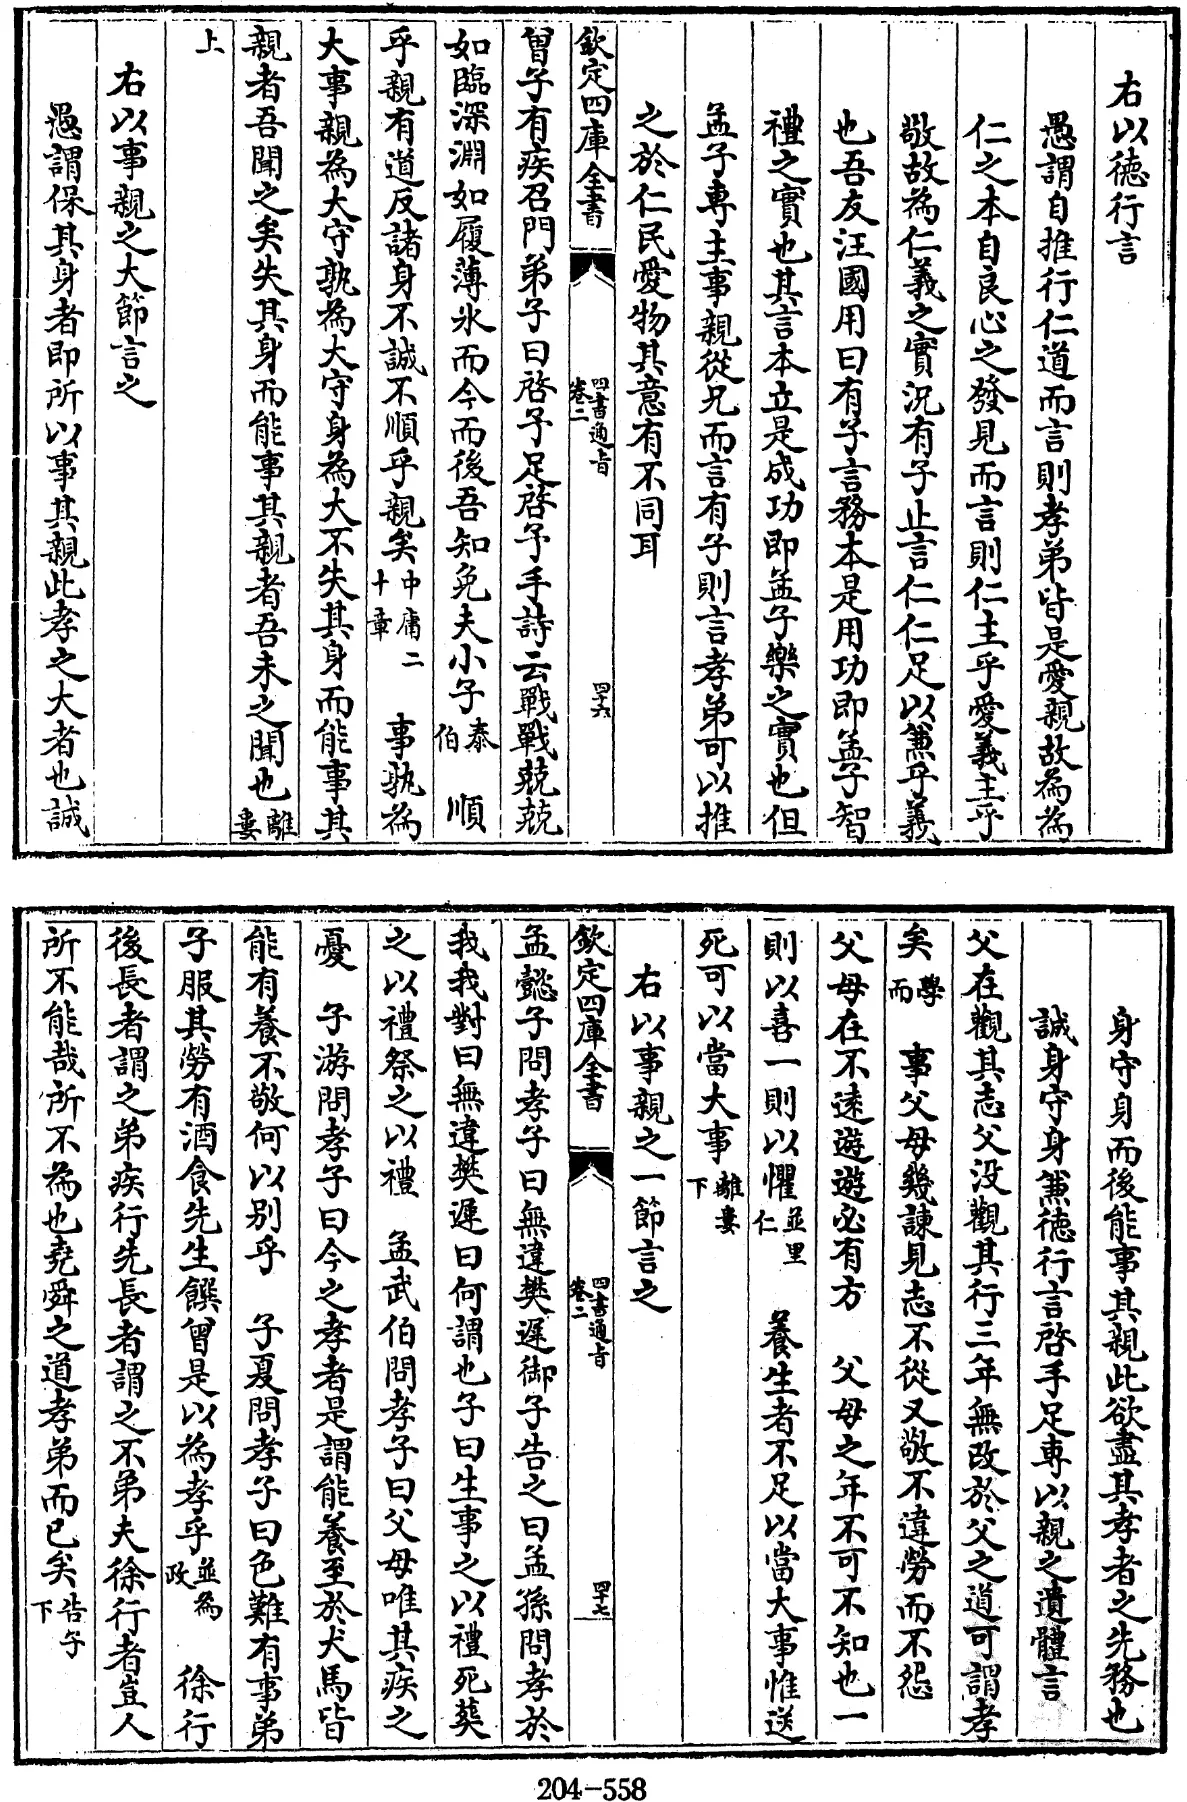 右以德行言
愚謂自推行仁道而言則孝弟皆是愛親故為為
仁之本自良心之發見而言則仁主乎愛義主乎
敬故為仁義之實況有子止言仁仁足以兼乎義
也吾友汪國用曰有子言務本是用功即孟子智
禮之實也其言本立是成功即孟子樂之實也但
孟子專主事親從兄而言有子則言孝弟可以推
之於仁民愛物其意有不同耳
欽定四庫全書 四書通旨 卷二 四十六
曾子有疾召門弟子曰啓予足啓予手詩云戰戰兢兢
如臨深淵如履薄氷而今而後吾知免夫小子泰伯 順
乎親有道反諸身不誠不順乎親矣中庸二十章 事孰為
大事親為大守孰為大守身為大不失其身而能事其
親者吾聞之矣失其身而能事其親者吾未之聞也離婁
上
右以事親之大節言之
愚謂保其身者即所以事其親此孝之大者也誠
身守身而後能事其親此欲盡其孝者之先務也
誠身守身兼德行言啓手足專以親之遺體言
父在觀其志父沒觀其行三年無改於父之道可謂孝
矣學而 事父母幾諫見志不從又敬不違勞而不怨
父母在不遠遊遊必有方 父母之年不可不知也一
則以喜一則以懼並里仁 養生者不足以當大事惟送
死可以當大事離婁下
右以事親之一節言之
欽定四庫全書 四書通旨 卷二 四十七
孟懿子問孝子曰無違樊遲御子告之曰孟孫問孝於
我我對曰無違樊遲曰何謂也子曰生事之以禮死葬
之以禮祭之以禮 孟武伯問孝子曰父母唯其疾之
憂 子游問孝子曰今之孝者是謂能養至於犬馬皆
能有養不敬何以别乎 子夏問孝子曰色難有事弟
子服其勞有酒食先生饌曾是以為孝乎並為政 徐行
後長者謂之弟疾行先長者謂之不弟夫徐行者豈人
所不能哉所不為也堯舜之道孝弟而已矣告子下
204-558